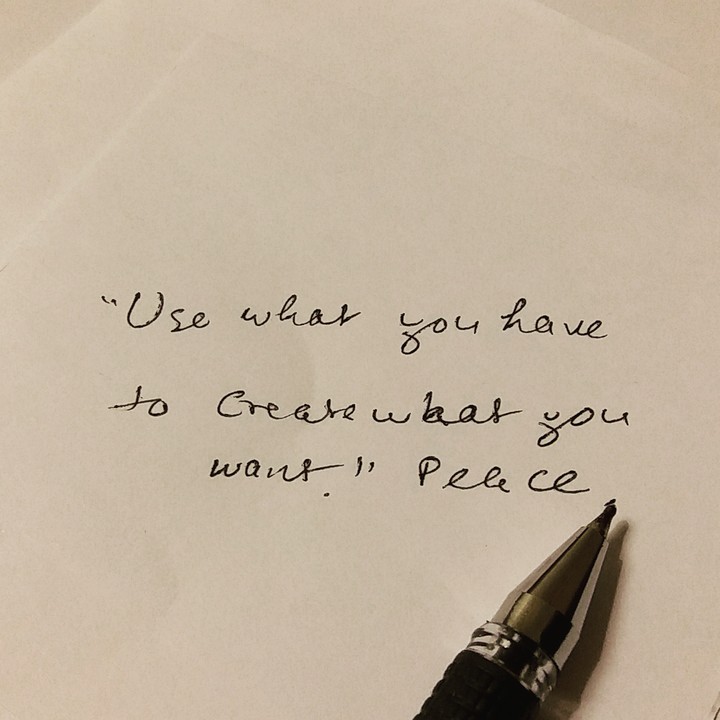 "Use what you have
to Create what you
want." Peace